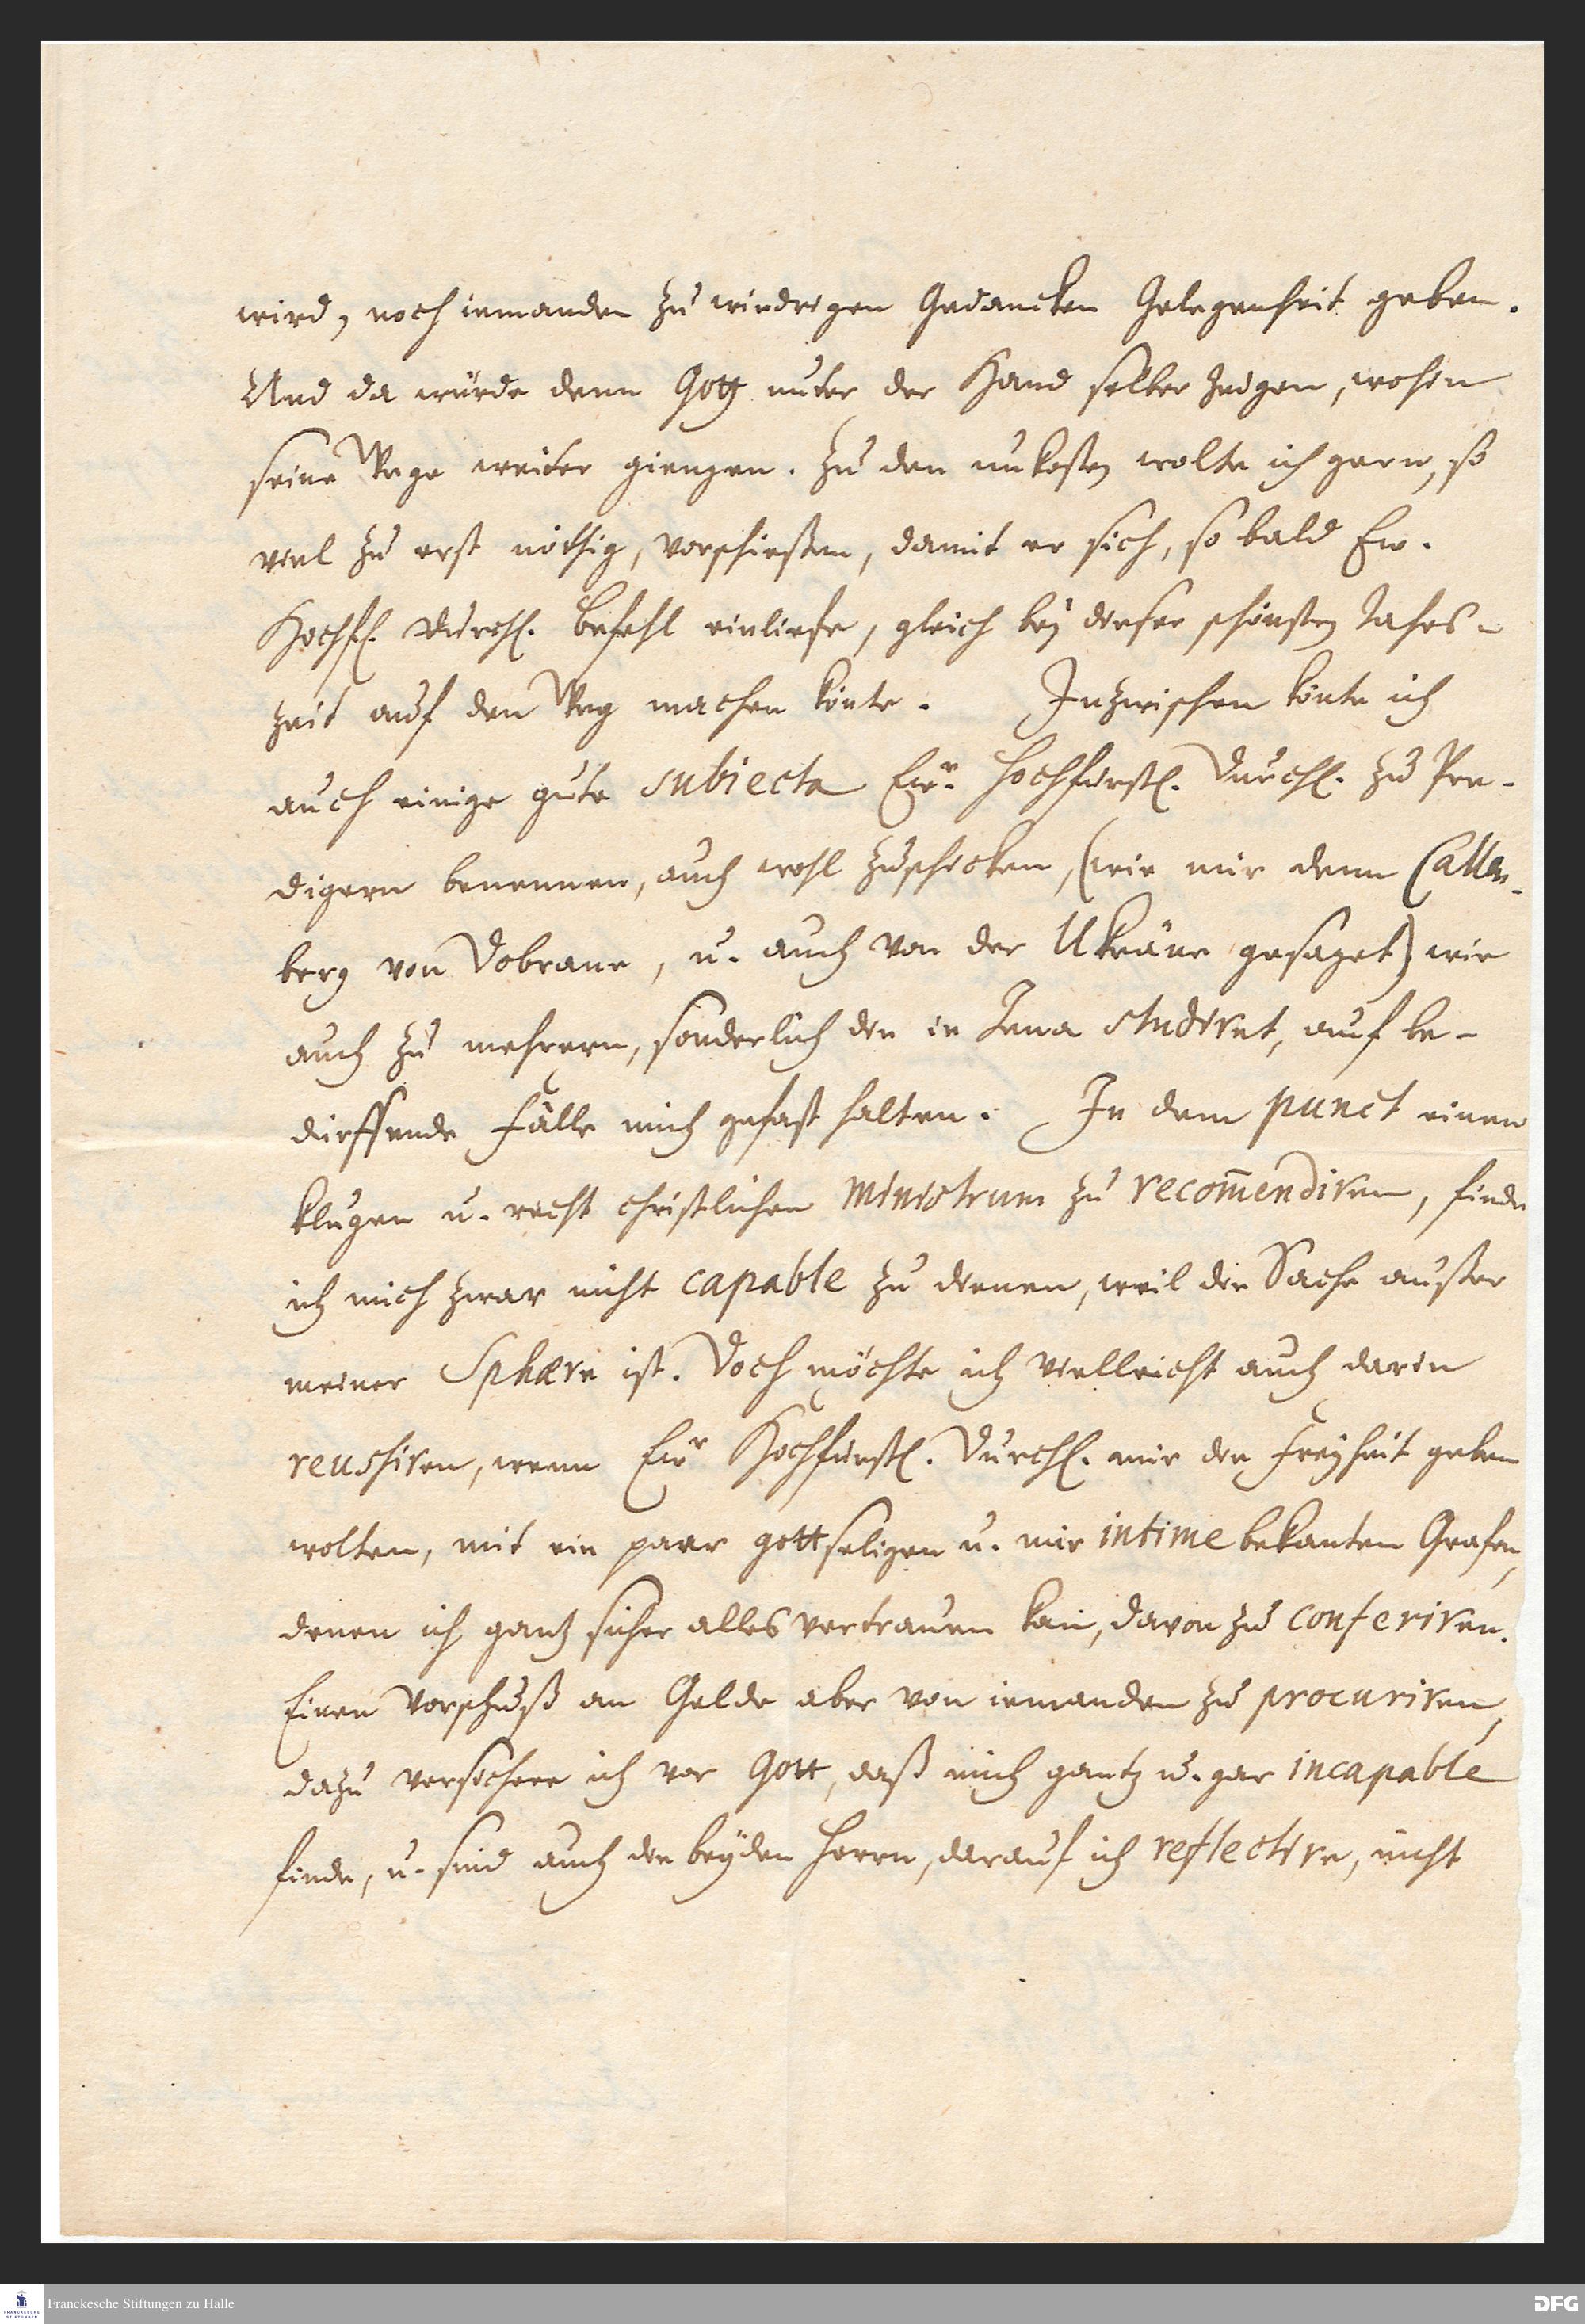 wird, noch iemanden zu wiedrigen Gedancken Gelegenheit geben.
Und da würde denn Gott unter der Hand selber zeigen, wohin
seine Wege weiter giengen. Zu den unkosten wolte ich gern, so
viel zu erst nöthig, vorschießen, damit er sich, so bald Ew.
Hochfl. Durchl. Befehl einliefe, gleich bey dieser schönsten Jahrs-
zeit auf den Weg machen könte. Inzwischen könte ich
auch einige gute subiecta Ewr. Hochfürstl. Durchl. zu Pre-
digern benennen, auch wohl zuschicken, (wie mir denn Callen-
berg von Dobrane, u. auch von der Ukräne gesaget) wie
auch zu mehrern, sonderlich die in Jena studiret, auf be-
dürffende Fälle mich gefast halten. In dem punct einen
klugen u. recht christlichen Ministrum zu recom̄endiren, finde
ich mich zwar nicht capable zu dienen, weil die Sache außer
meiner Sphære ist. Doch möchte ich vielleicht auch darin
reussiren, wenn Ewr Hochfürstl. Durchl. mir die Freyheit geben
wolten, mit ein paar gottseligen u. mir intime bekanten Grafen,
denen ich gantz sicher alles vertrauen kan, davon zu conferiren.
Einen Vorschuß an Gelde aber von iemanden zu procuriren,
dazu versichere ich vor Gott, daß mich gantz u. gar incapable
finde, u. sind auch die beyden Herrn, darauf ich reflectire, nicht
Franckesche Stiftungen zu Halle
FRANCKESCHE STIFTUNGEN
DFG